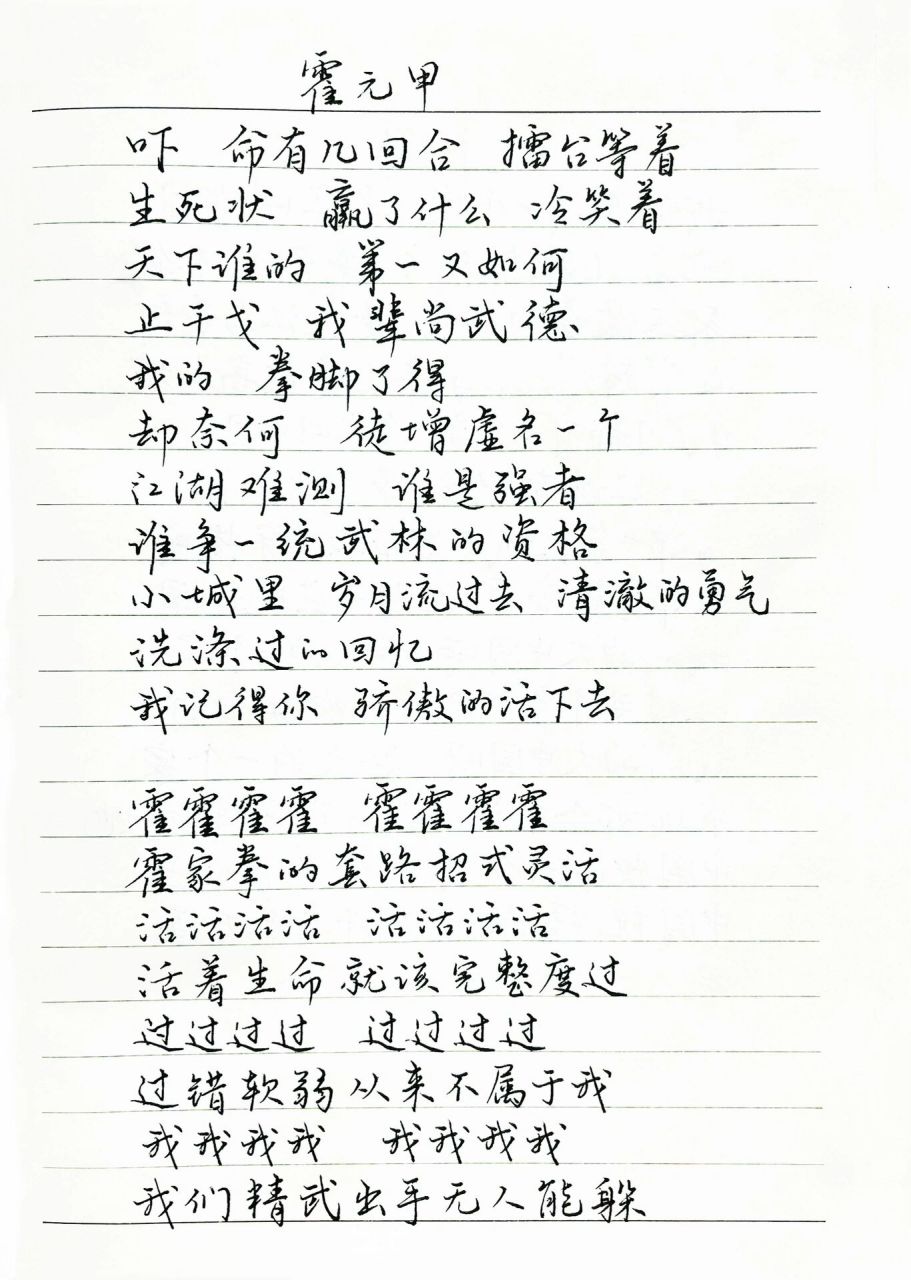 霍元甲
吓 命有几回合 擂台等着
生死状 赢了什么 冷笑着
天下谁的 第一又如何
止干戈 我辈尚武德
我的 拳脚了得
却奈何 徒增虚名一个
江湖难测 谁是强者
谁争一统武林的资格
小城里 岁月流过去 清澈的勇气
洗涤过的回忆
我记得你 骄傲的活下去
霍霍霍霍 霍霍霍霍
霍家拳的套路招式灵活
活活活活 活活活活
活着生命就该完整度过
过过过过 过过过过
过错软弱从来不属于我
我我我我 我我我我
我们精武出手无人能躲